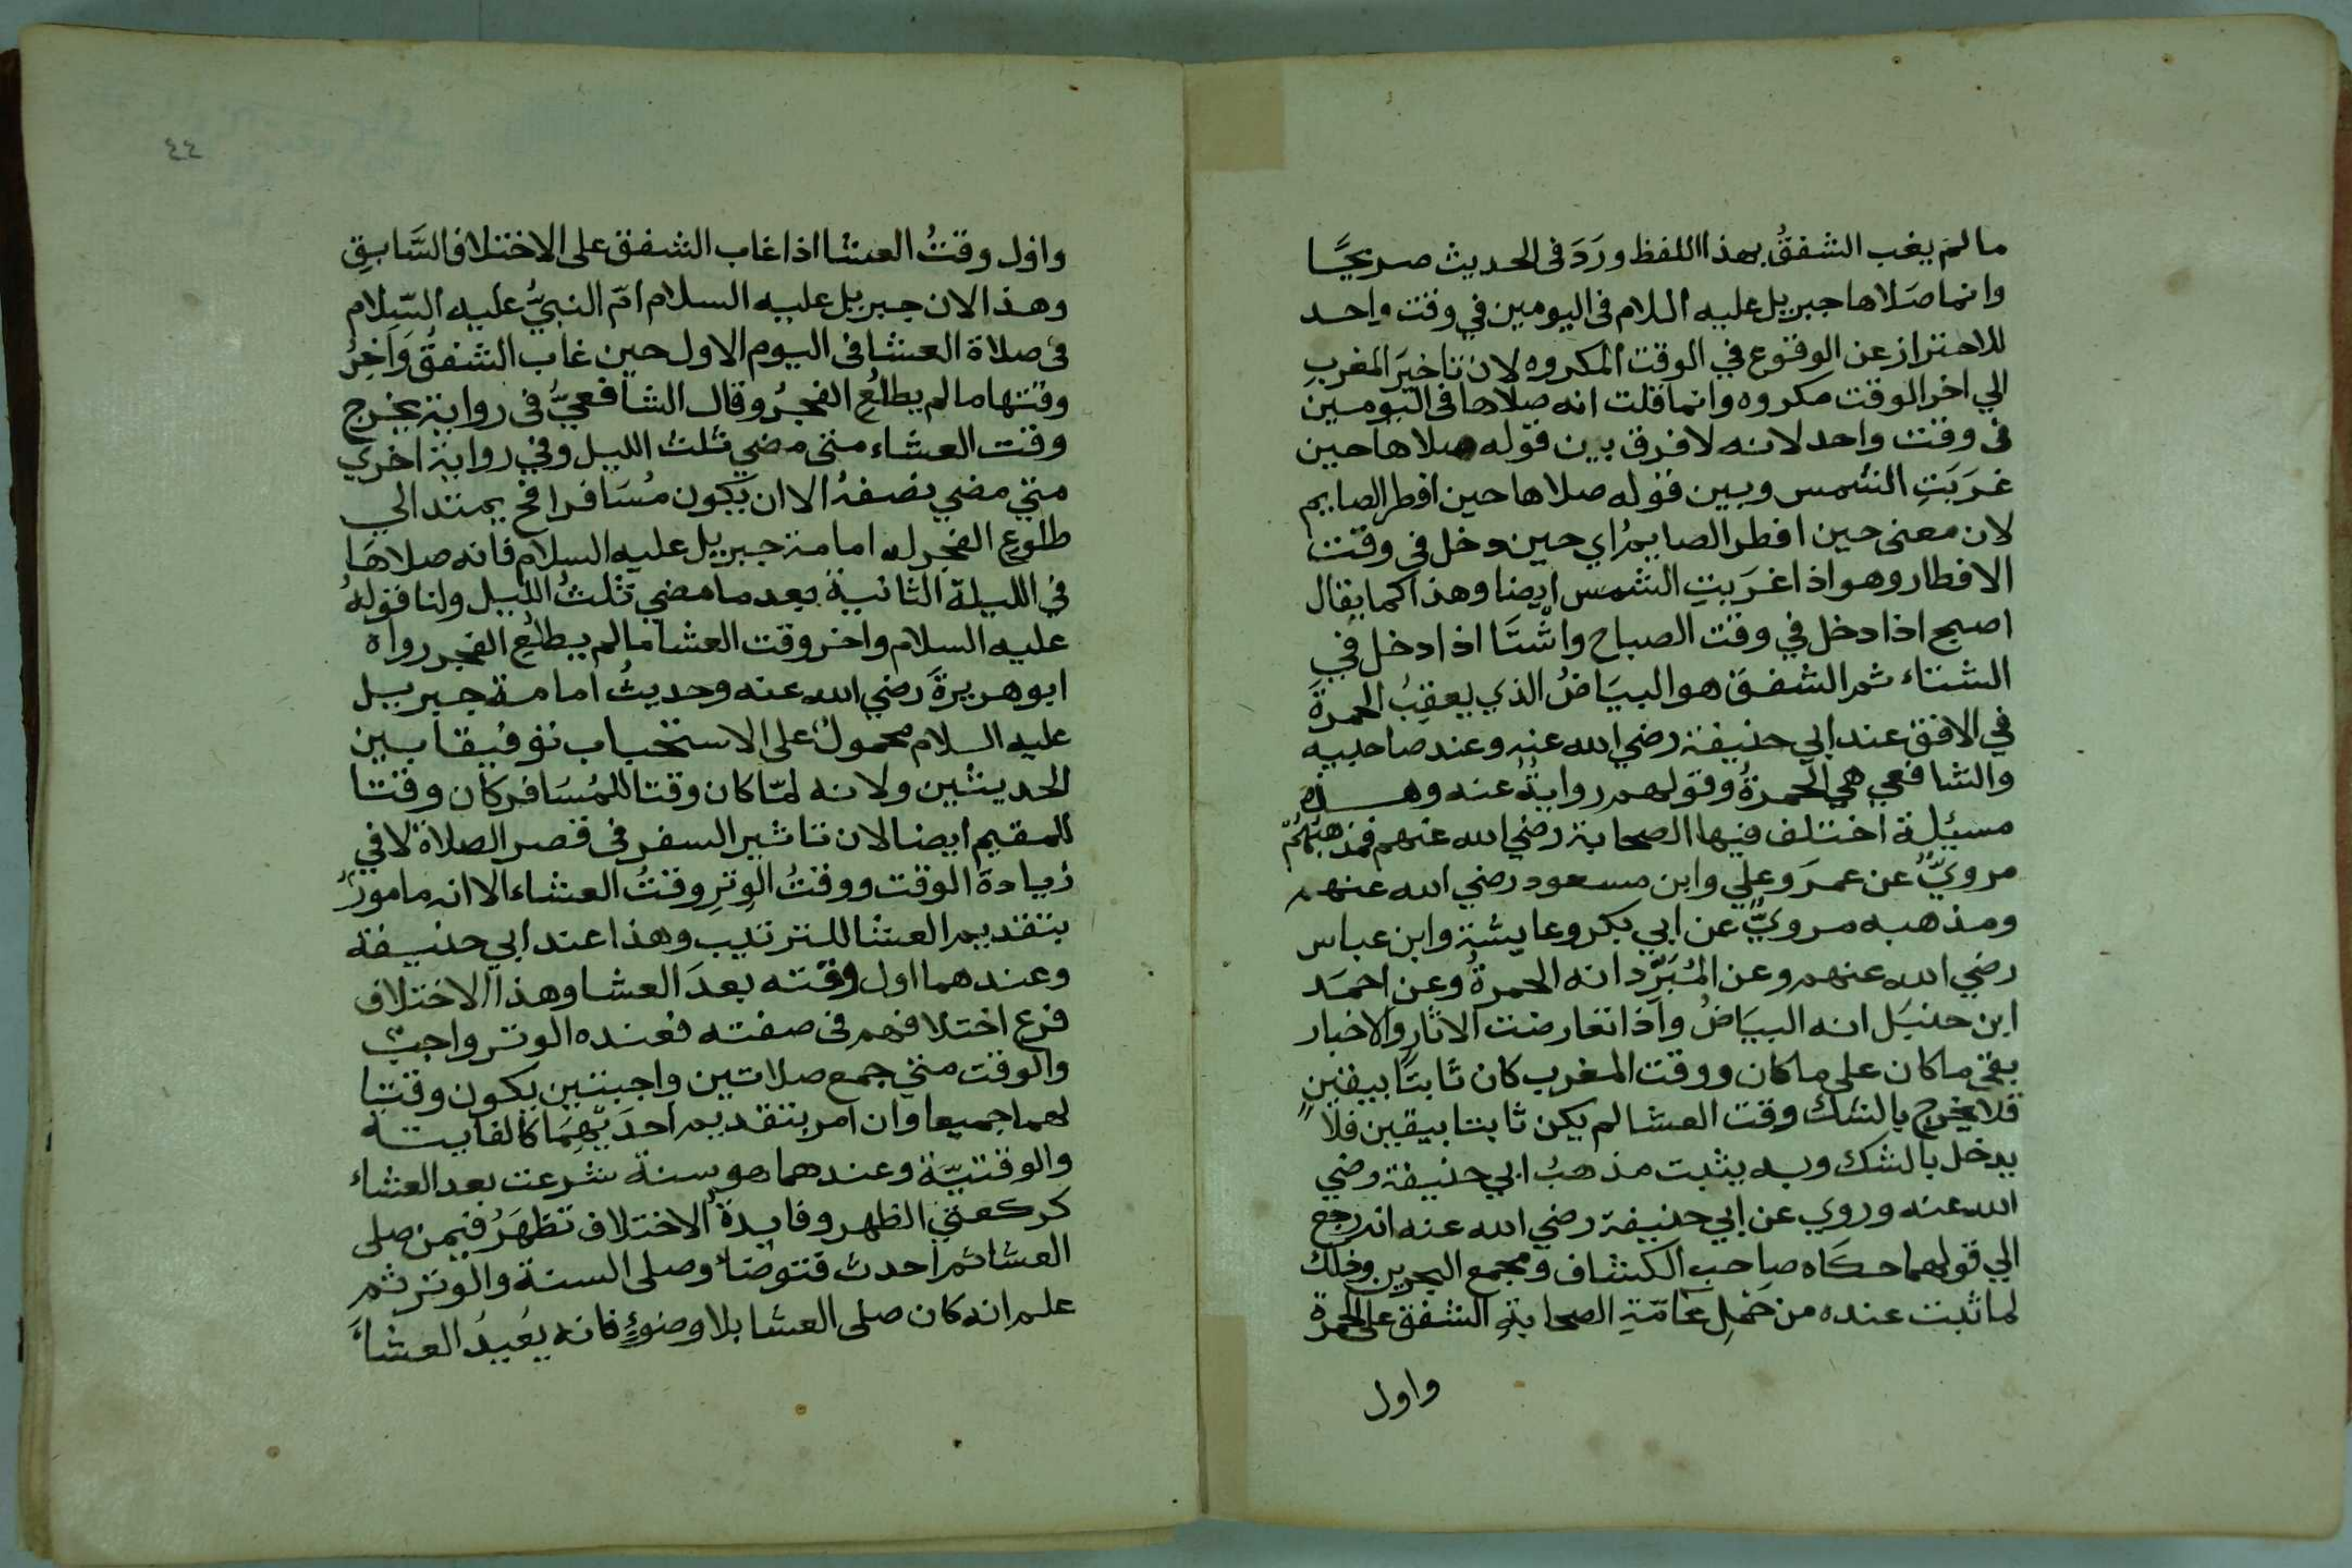 ما لم يغب الشفقُ بهذا اللفظ ورَدَ فى الحديث صريحًا
وانما صَلاها جبريل عليه السلام فى اليومين في وقت واحد
للاحتراز عن الوقوع في الوقت المكروه لان تاخيرَ المغربِ
الي اخر الوقت مكروه وانما قلت انه صلاها فى اليومين
فى وقت واحد لانه لا فرق بين قوله صلاها حين
غَرَبَتِ الشمس وبين قوله صلاها حين افطر الصايم
لان معنى حين افطر الصايمُ اي حين دخل في وقت
الافطار وهو اذا غرَبتِ الشمس ايضا وهذا كما يقال
اصبح اذا دخل في وقت الصباح واشْتَا اذا دخل في
الشتاء ثم الشفقَ هو البيَاضُ الذي يعقِبُ الحمرةَ
في الافق عند ابي حنيفة رضي الله عنه وعند صاحبيه
والشافعي هي الحمرةُ وقولهم روايةٌ عنه وهذه
مسيئلة اختلف فيها الصحابة رضي الله عنهم فمذهبُهُمْ
مرويٌّ عن عمرَ وعلي وابن مسعود رضي الله عنهم
ومذهبه مرويٌّ عن ابي بكر وعايشة وابن عباس
رضي الله عنهم وعن المُبَرّد انه الحمرةُ وعن احمَد
ابن حنبَل انه البيَاضُ واذا تعارضت الاثار والاخبار
بقي ما كان على ما كان ووقت المغرب كان ثابتًا بيقينٍ
فلا يخرج بالشك وقت العشا لم يكن ثابتا بيقين فلا
يدخل بالشك وبه يثبت مذهبُ ابي حنيفة رضي
الله عنه وروي عن ابي حنيفة رضي الله عنه انه رجع
الي قولهما حكَاه صاحب الكشاف ومجمع البحرين وذلك
لما ثبت عنده من حَمْلِ عَامّةِ الصحابةِ الشفق على الحمرة
واول
٤٤
واول وقتُ العشا اذا غاب الشفق على الاختلاف السَّابقِ
وهذا لان جبريل عليه السلام امّ النبيَّ عليه السّلام
فى صلاة العشا فى اليوم الاول حين غاب الشفقُ وَاخِرُ
وقتها ما لم يطلُعِ الفجرُ وقال الشافعيُّ فى رواية يخرج
وقت العشاء متى مضي ثلث الليل وفي رواية اخري
متي مضي نصفهُ الا ان يكون مُسَافرا فح يمتد الي
طلوع الفجر له امامة جبريل عليه السلام فانه صلاهَا
في الليلة الثانية بعد ما مضي ثلثُ الليل ولنا قولُهُ
عليه السلام واخر وقت العشا ما لم يطلُع الفجر رواه
ابو هريرةَ رضي الله عنه وحديثُ امامة جبريل
عليه السلام محمولٌ على الاستحباب توفيقا بين
الحديثين ولانه لمّا كان وقتا للمُسَافر كان وقتا
للمقيم ايضا لان تاثير السفر فى قصر الصلاة لا في
زيادة الوقت ووقتُ الوِترِ وقتُ العشاء الا انه مامورٌ
بتقديم العشا للترتيب وهذا عند ابي حنيفة
وعندهما اول وقته بعدَ العشا وهذا الاختلاف
فرع اختلافهم فى صفته فعنده الوتر واجبٌ
والوقت متي جمع صلاتين واجبتين يكون وقتا
لهما جميعا وان امر بتقديم احدَيهِمَا كالفايتة
والوقتيّة وعندهما هو سنة شرعت بعد العشاء
كركعتي الظهر وفايدةُ الاختلاف تظهَرُ فيمن صلى
العشا ثم احدث فتوضأ وصلى السنة والوتر ثم
علم انه كان صلى العشا بلا وضوءٍ فانه يُعيدُ العشاَء